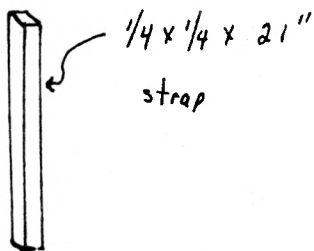 1/4 x 1/4 x 21"
strap